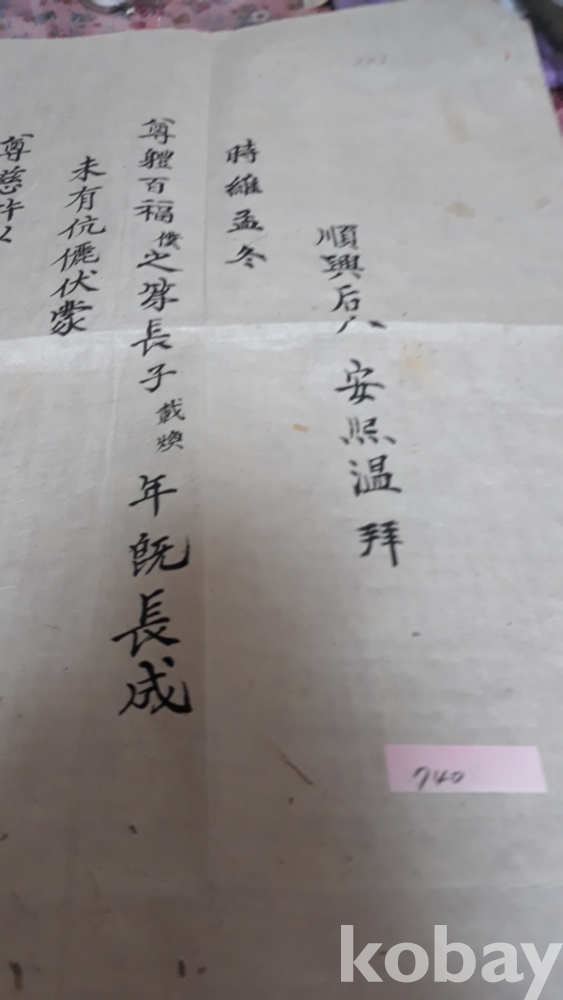 順興后人 安熙温 拜
時維孟冬
尊體百福 僕之家長子 載煥 年旣長成
未有伉儷伏蒙
尊慈許以
740
kobay